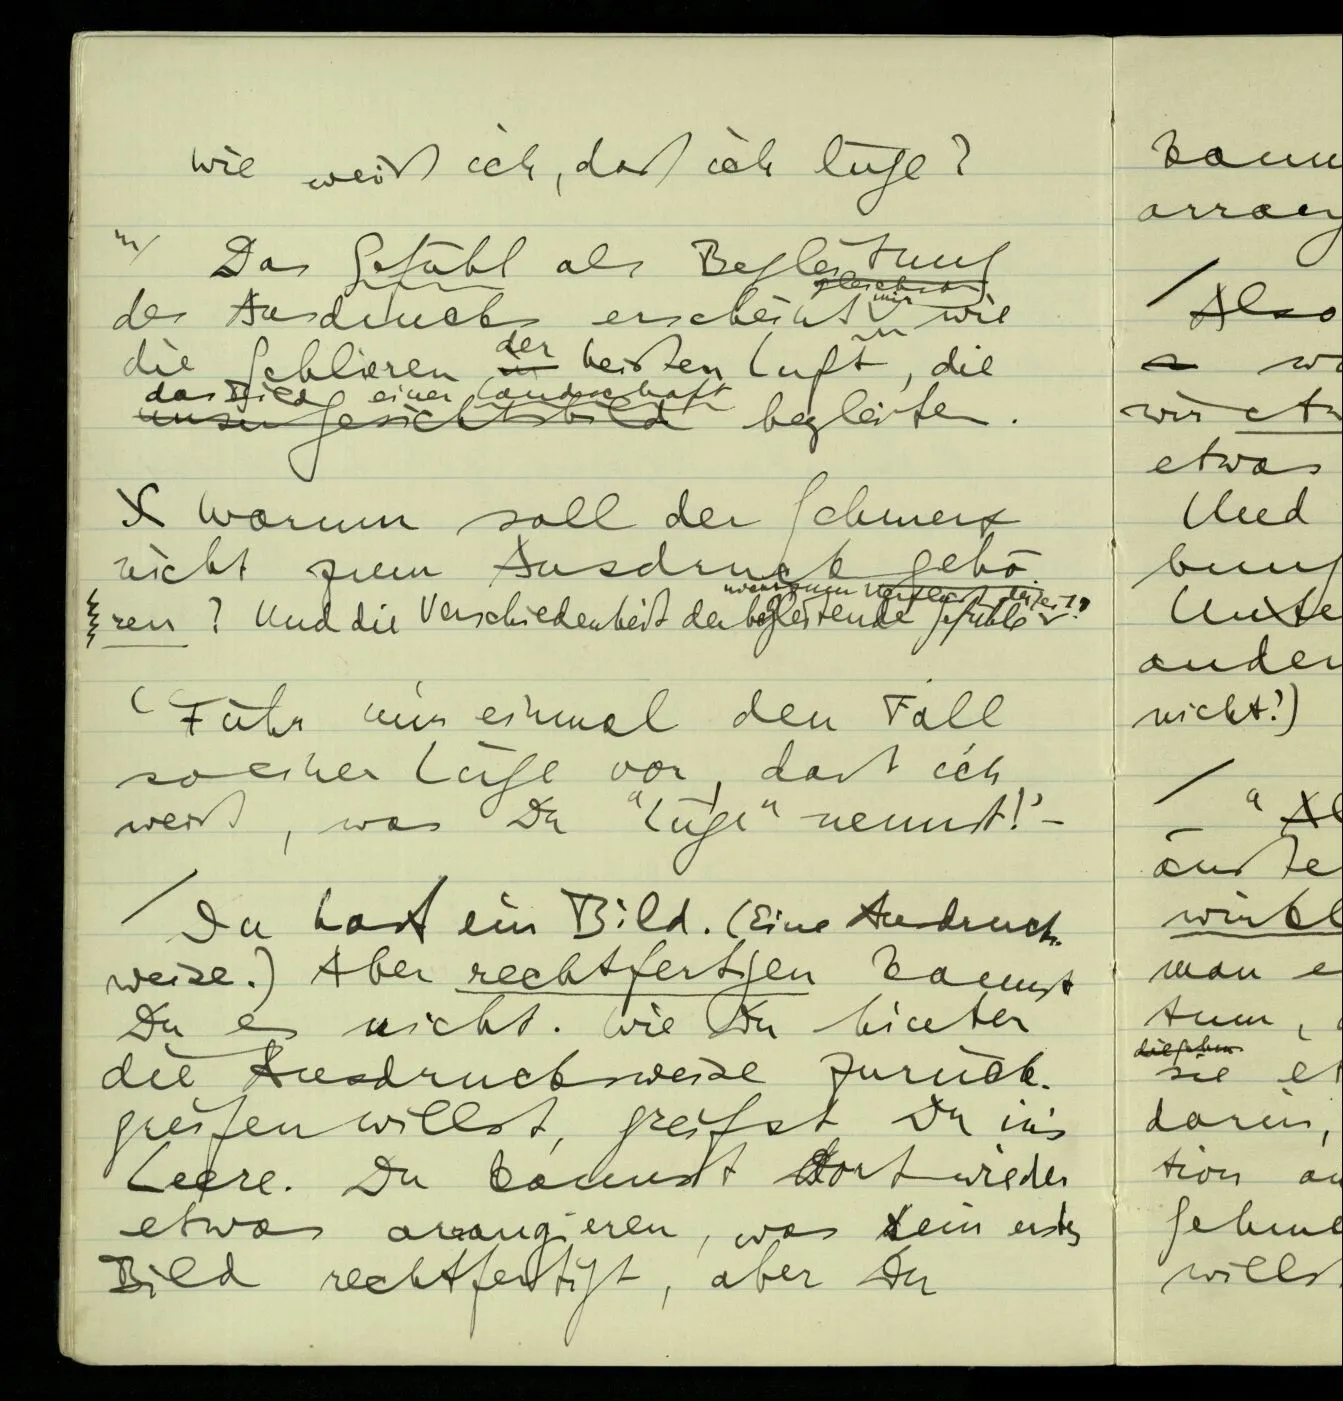 wie weiß ich, daß ich lüge?
Das Gefühl als Begleitung
gleichsam
des Ausdrucks erscheint mir wie
die Schlieren der heißen Luft, die
das Bild einer Landschaft
unser Gesichtsbild begleiten.
Warum soll der Schmerz
nicht zum Ausdruck gehö
ren? Und die Verschiedenheit der begleitende Gefühle
(Führ mir einmal den Fall
so einer Lüge vor, daß ich
weiß, was Du "Lüge" nennst!' –
/ Du hast ein Bild. (Eine Ausdrucks-
weise.) Aber rechtfertigen kannst
Du es nicht. Wie Du hinter
die Ausdrucksweise zurück-
greifen willst, greifst Du in's
Leere. Du kannst dort wieder
etwas arrangieren, was Dein erstes
Bild rechtfertigt, aber Du
kann
arrang
/ Also
wir etw
etwas
Und
bung
Unte
ander
nicht!)
/ "Al
äuße
wirkl
man e
tum,
sie et
darin,
tion au
Schme
wills